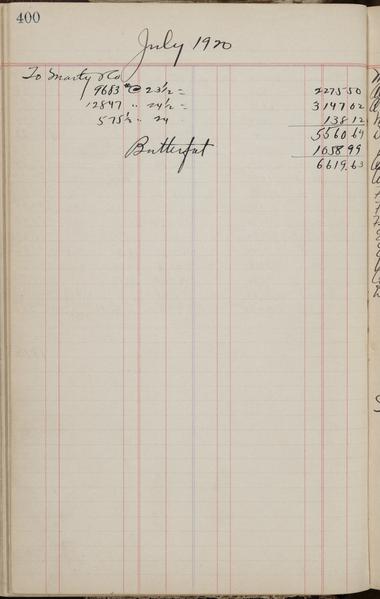 400
July 1920
To Marty & Co
9683 # @ 23½ = 2275 50
12847 " 24½ = 3147 02
575½ " 24 138 12
5560 64
Butterfat 1058 99
6619.63